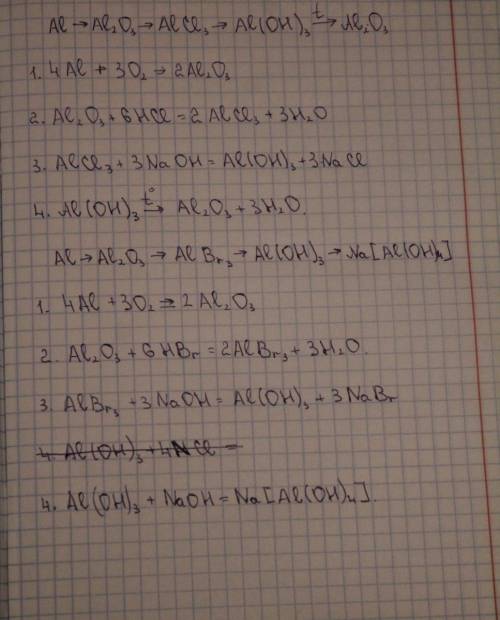 Al → Al₂O₃ → AlCl₃ → Al(OH)₃ →t Al₂O₃
1. 4Al + 3O₂ → 2Al₂O₃
2. Al₂O₃ + 6HCl = 2AlCl₃ + 3H₂O
3. AlCl₃ + 3NaOH = Al(OH)₃ + 3NaCl
4. Al(OH)₃ →t° Al₂O₃ + 3H₂O.
Al → Al₂O₃ → AlBr₃ → Al(OH)₃ → Na[Al(OH)₄]
1. 4Al + 3O₂ → 2Al₂O₃
2. Al₂O₃ + 6HBr = 2AlBr₃ + 3H₂O.
3. AlBr₃ + 3NaOH = Al(OH)₃ + 3NaBr
4. Al(OH)₃ + NaOH = Na[Al(OH)₄].